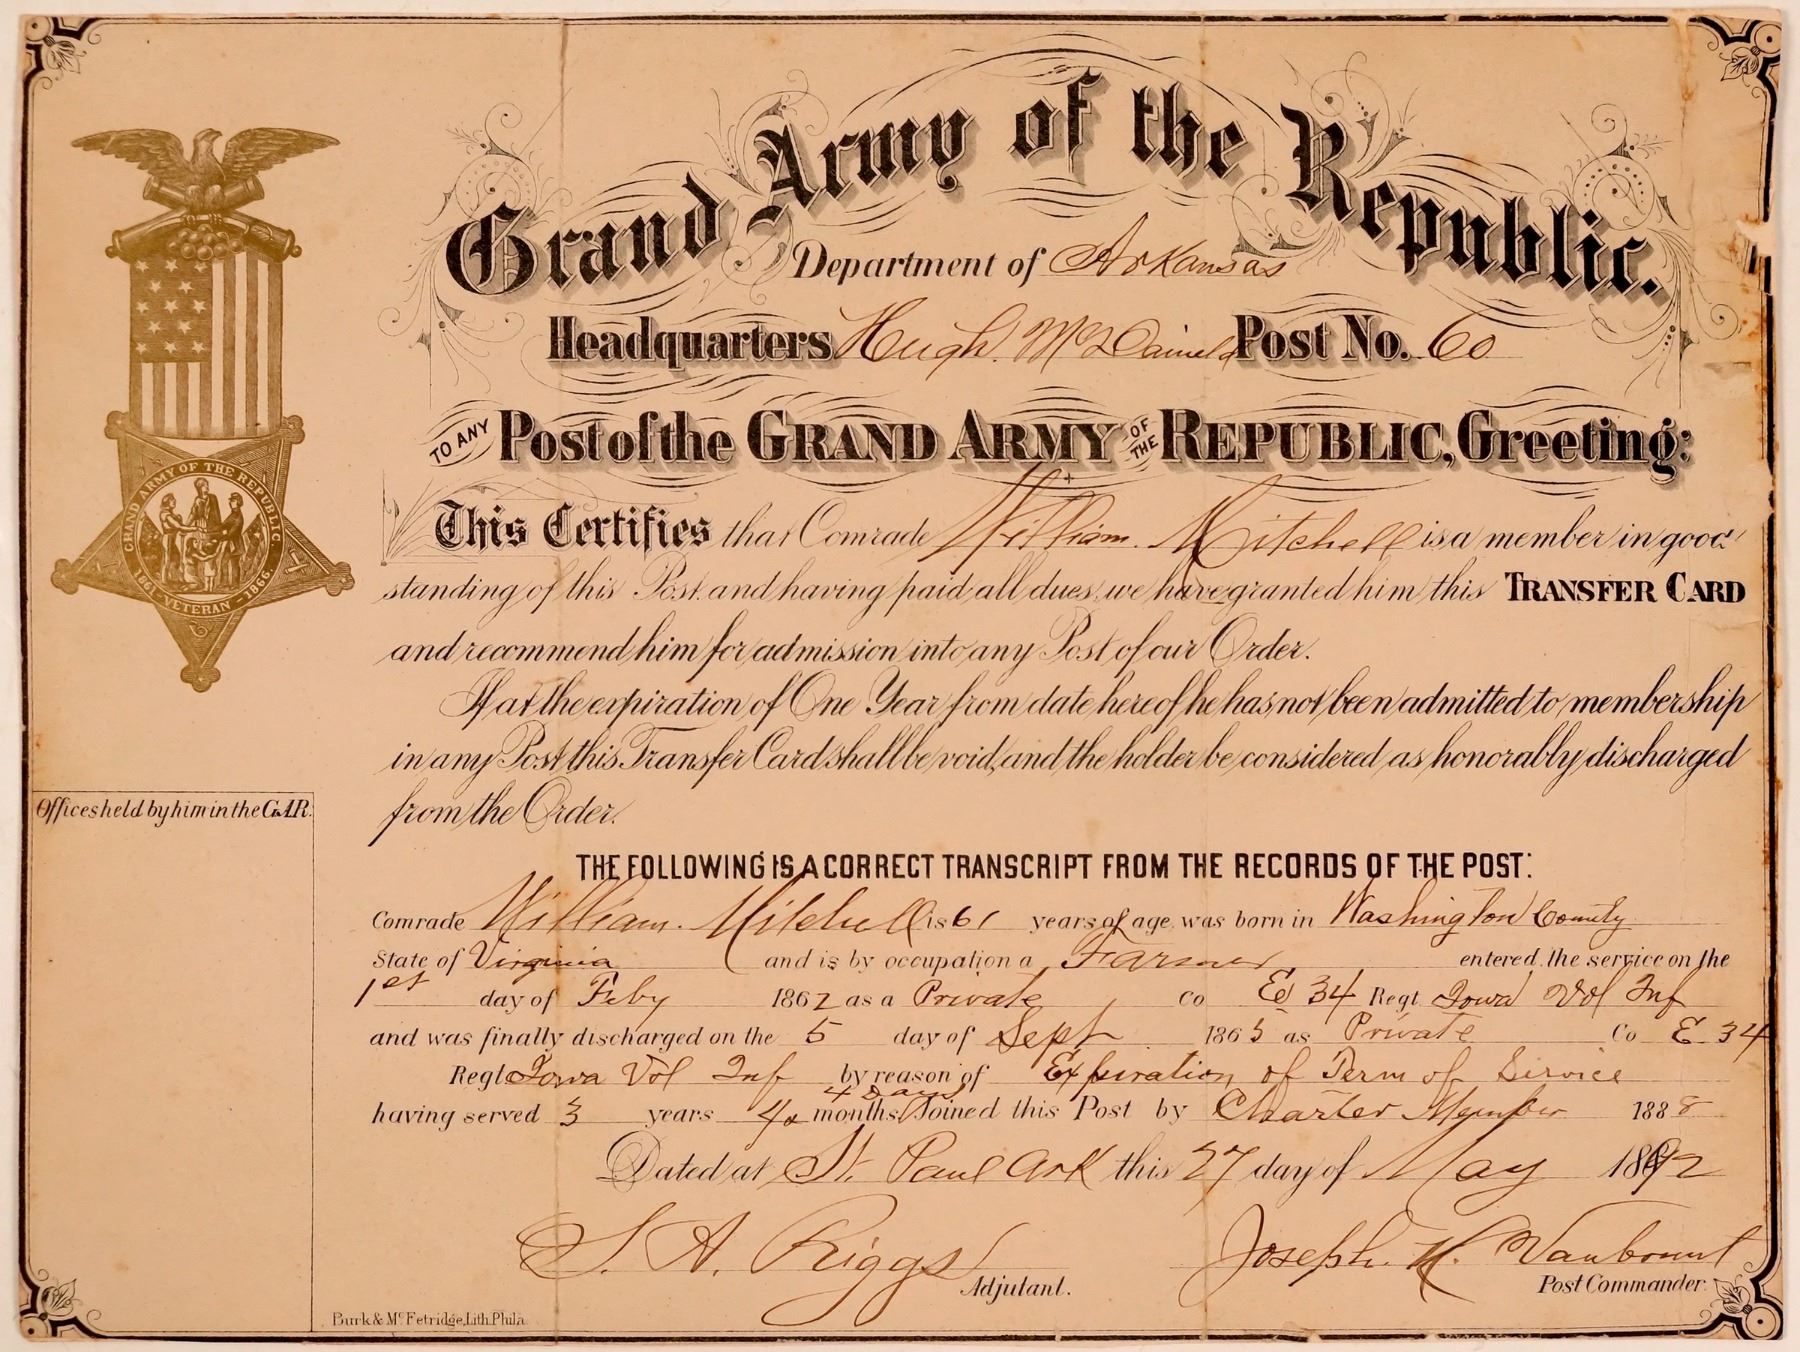 Grand Army of the Republic.
Department of Arkansas
Headquarters Hugh. McDaniels Post No. 60
TO ANY Post of the GRAND ARMY OF THE REPUBLIC, Greeting:
This Certifies that Comrade William. Mitchell is a member in good
standing of this Post and having paid all dues, we have granted him this TRANSFER CARD
and recommend him for admission into any Post of our Order.
If at the expiration of One Year from date hereof he has not been admitted to membership
in any Post this Transfer Card shall be void, and the holder be considered as honorably discharged
from the Order.
GRAND ARMY OF THE REPUBLIC
1861 - VETERAN - 1866.
Offices held by him in the G.A.R.
THE FOLLOWING IS A CORRECT TRANSCRIPT FROM THE RECORDS OF THE POST:
Comrade William. Mitchell is 61 years of age, was born in Washington County
State of Virginia and is by occupation a Farmer entered the service on the
1st day of Feby 1862 as a Private, Co E 34 Regt Iowa Vol Inf
and was finally discharged on the 5 day of Sept 1865 as Private Co E. 34
Regt Iowa Vol Inf by reason of Expiration of Term of Service
having served 3 years 4 months 4 Days Joined this Post by Charter Member 1888
Dated at St. Paul Ark this 27 day of May 1892
S. A. Riggs Adjutant.
Joseph. H. Post Commander.
Burk & McFetridge, Lith. Phila.